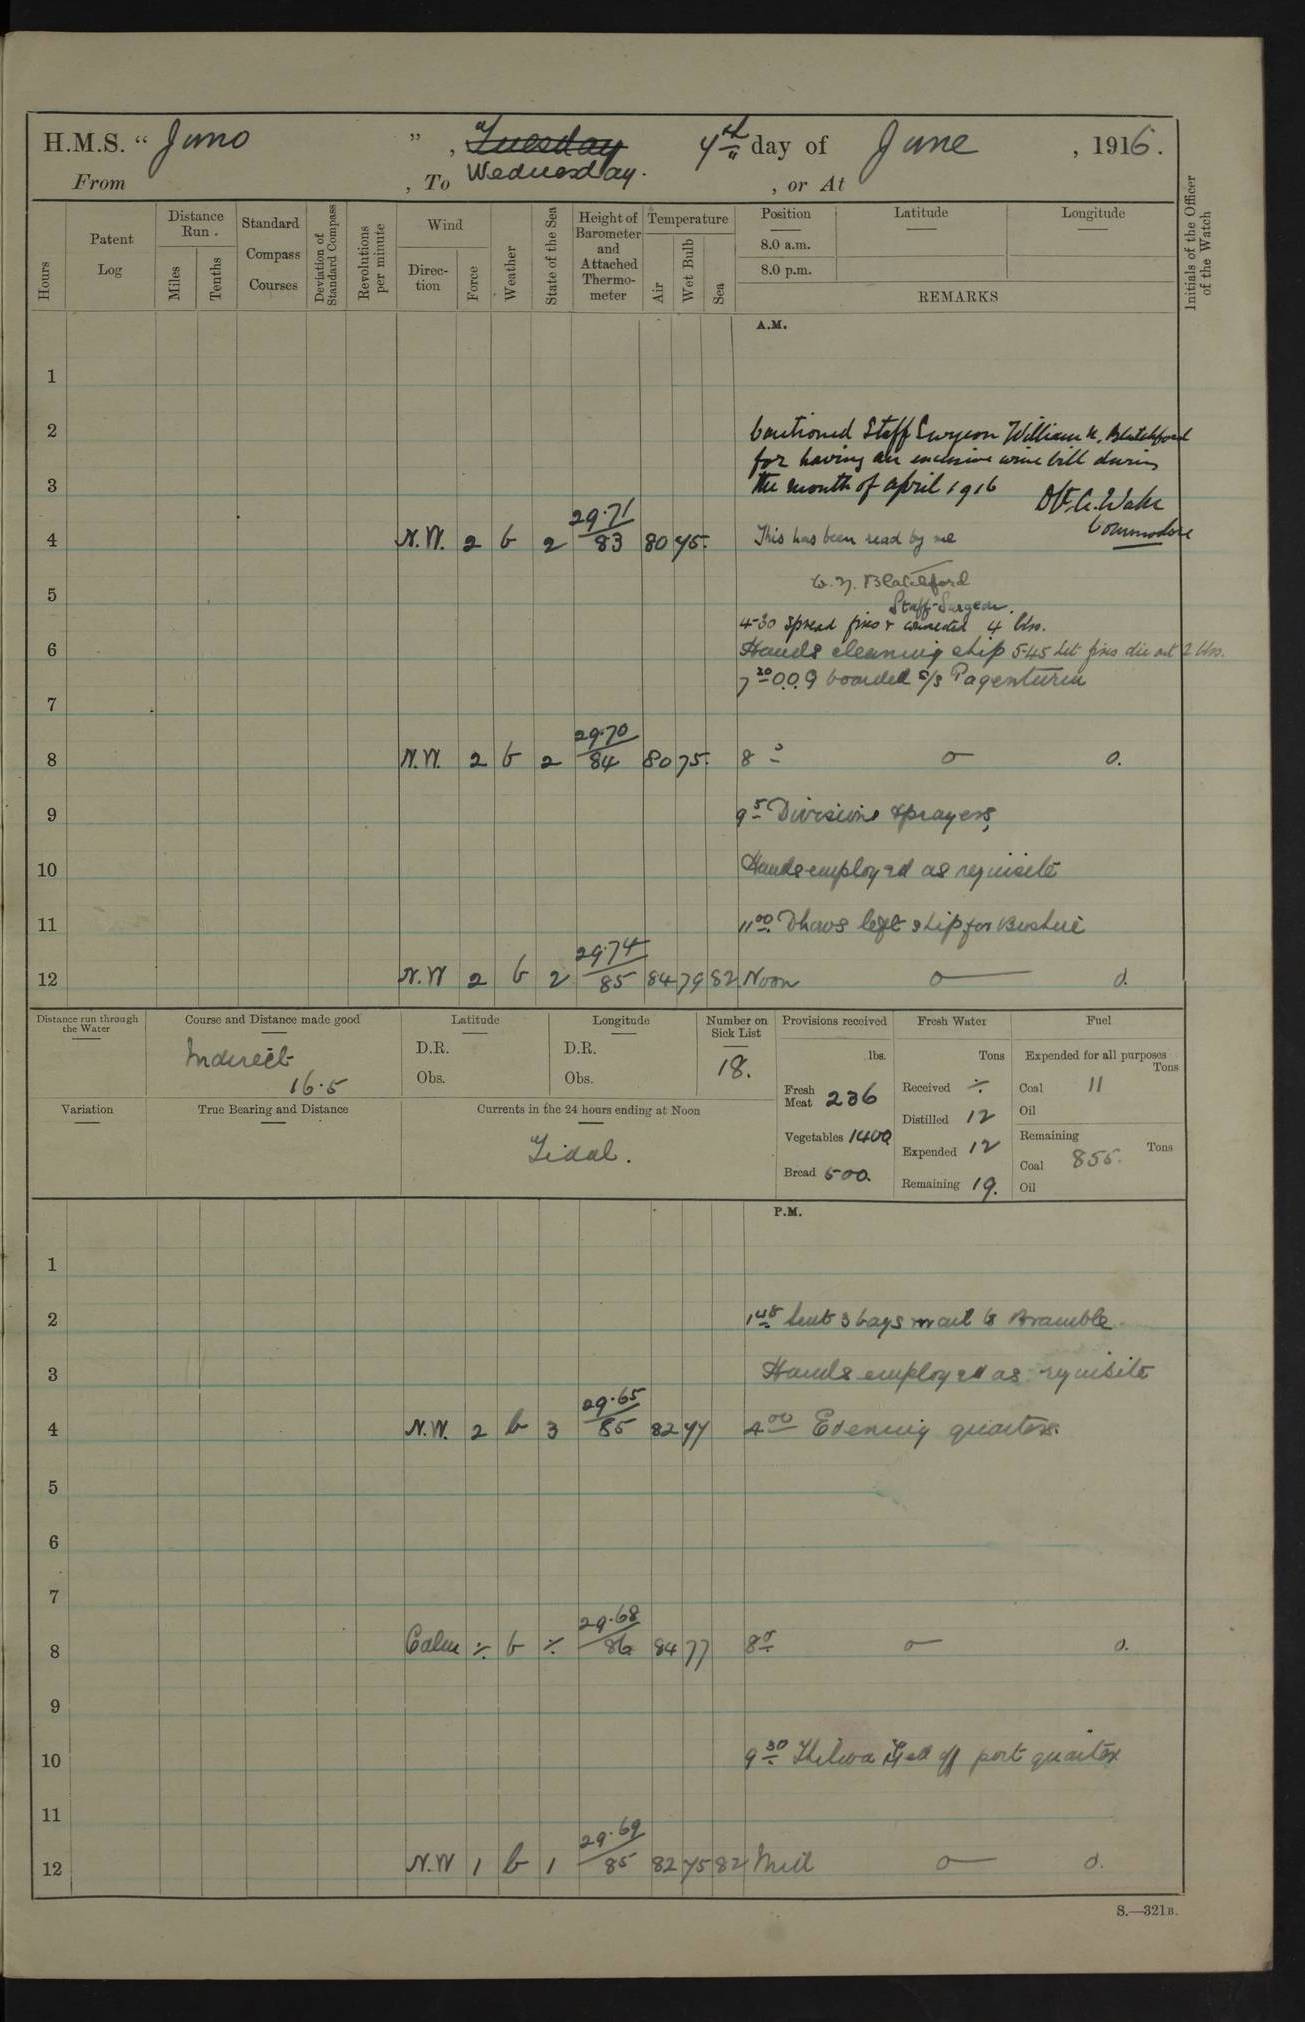 H.M.S. “ Juno ”, Tuesday 7th day of June, 1916.
From , To Wednesday. , or At
Hours
Patent Log
Distance Run.
Miles
Tenths
Standard Compass Courses
Deviation of Standard Compass
Revolutions per minute
Wind
Direction
Force
Weather
State of the Sea
Height of Barometer and Attached Thermometer
Temperature
Air
Wet Bulb
Sea
Position
8.0 a.m.
8.0 p.m.
Latitude
Longitude
REMARKS
Initials of the Officer of the Watch
A.M.
1
2 Cautioned Staff Surgeon William N. Blatchford
for having an excessive wine bill during
3 the month of April 1916
D St. A. Wake
Commodore
29.71
4 N.W. 2 b 2 83 80 75. This has been read by me
5 W. N. Blatchford
Staff-Surgeon.
4-30 Spread fires & connected 4 blrs.
6 Hands cleaning ship 5.45 Let fires die out 2 blrs.
7 30 O.O.G boarded S/S Pagenturm
7
29.70
8 N.W. 2 b 2 84 80 75. 8 0 o o.
9 9 5 Divisions & prayers,
10 Hands employed as requisite
11 11 00 Dhows left ship for Bushire
29.74
12 N.W 2 b 2 85 84 79 82 Noon o o.
Distance run through the Water
Course and Distance made good
Indirect
16.5
Latitude
D.R.
Obs.
Longitude
D.R.
Obs.
Number on Sick List
18.
Variation
True Bearing and Distance
Currents in the 24 hours ending at Noon
Tidal.
Provisions received
lbs.
Fresh Meat 236
Vegetables 1400
Bread 500.
Fresh Water
Tons
Received ÷
Distilled 12
Expended 12
Remaining 19.
Fuel
Expended for all purposes
Tons
Coal 11
Oil
Remaining
Tons
Coal 855.
Oil
P.M.
1
2 1 48 Sent 3 bags mail to Bramble
3 Hands employed as requisite
29.65
4 N.W. 2 b 3 85 82 77 4 00 Evening quarters.
5
6
7
29.68
8 Calm ÷ b ÷ 86 84 77 8 0 o o.
9
10 9 30 off port quarter
11
29.69
12 N.W 1 b 1 85 82 75 82 Mid o o.
S.—321B.